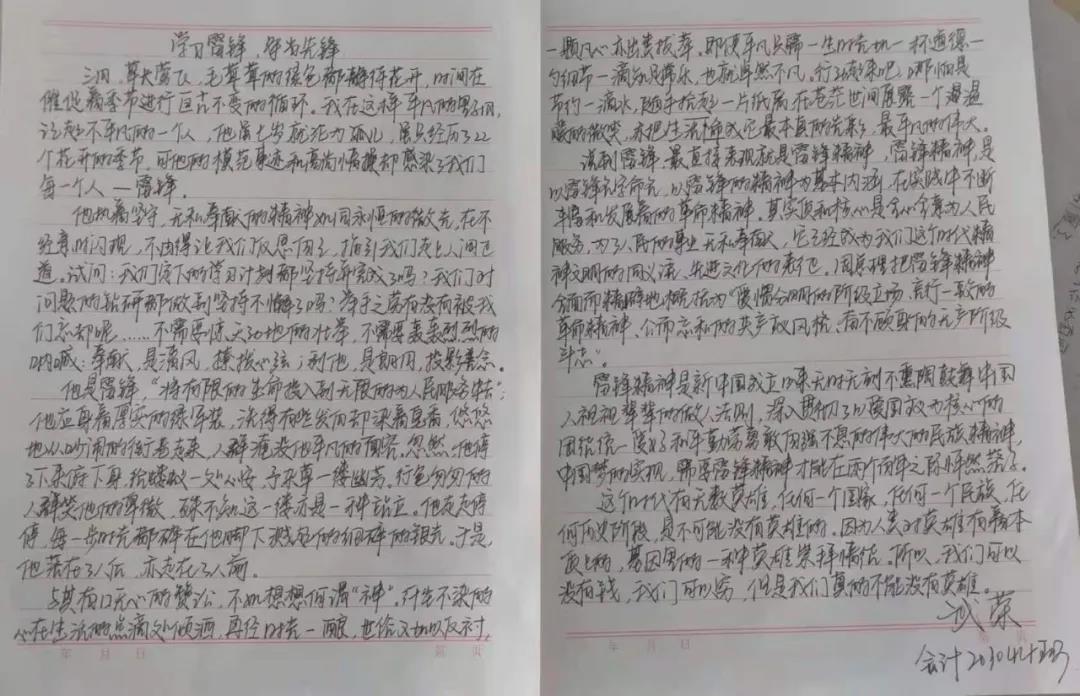 学习雷锋 争当先锋
三月,草长莺飞,毛茸茸的绿色都静待花开,时间在
催促着季节进行亘古不变的循环。我在这样平凡的岁月,
记起不平凡的一个人,他虽七岁就沦为孤儿,虽只经历了22
个花开的季节,可他的模范事迹和高尚情操却感染了我们
每一个人——雷锋。
他执着坚守,无私奉献的精神如同永恒的微光,在不
经意时闪现,不由得让我们反思自己,指引我们走上人间正
道。试问:我们定下的学习计划都坚持并完成了吗?我们对
问题的钻研都做到坚持不懈了吗?举手之劳有没有被我
们忘却呢……不需要惊天动地的壮举,不需要轰轰烈烈的
呐喊;奉献,是清风,撩拨心弦;利他,是明月,投影善念。
他是雷锋,“将有限的生命投入到无限的为人民服务中去”;
他应身着厚实的绿军装,洗得有些发白却染着皂香,悠悠
地从吵闹的街巷走来,人群淹没他平凡的面容。忽然,他停
了下来俯下身,给蝼蚁一父心安,予杂草一缕幽芳。行色匆匆的
人群笑他的卑微,殊不知这一缕亦是一种站立。他走走停
停,每一步时光都碎在他脚下溅起的细碎的银光。于是,
他落在了人后,亦走在了人前。
与其有口无心的赞讼,不如想想何谓“神”。纤尘不染的
心在生活的点滴处倾洒,再经时光一酿,也给又加以反衬,
一颗凡心亦出类拔萃。即使平凡只需一生时光加一杯道德一
勺细节一滴知足常乐,也就卓然不凡。行动起来吧,哪怕是
节约一滴水,随手拾起一片纸屑,在苍茫世间展露一个温温
暖的微笑,亦把生活酿成它最本真的光彩,最平凡的伟大。
谈到雷锋,最直接表现就是雷锋精神,雷锋精神,是
以雷锋名字命名,以雷锋的精神为基本内涵,在实践中不断
丰富和发展着的革命精神。其实质和核心是全心全意为人民
服务,为了人民的事业无私奉献,它已经成为我们这个时代精
神文明的同义语、先进文化的表征。周总理把雷锋精神
全面而精辟地概括为“爱憎分明的阶级立场、言行一致的
革命精神、公而忘私的共产主义风格、奋不顾身的无产阶级
斗志”。
雷锋精神是新中国成立以来无时无刻不熏陶鼓舞中国
人祖祖辈辈的做人法则,深入贯彻了以爱国主义为核心的
团结统一爱好和平勤劳勇敢自强不息的伟大的民族精神,
中国梦的实现,需要雷锋精神才能在两个百年之际怦然落子。
这个时代有无数英雄,任何一个国家,任何一个民族,任
何历史阶段,是不可能没有英雄的。因为人类对英雄有着本
质上的,基因里的一种英雄崇拜情结。所以,我们可以
没有钱,我们可以穷,但是我们真的不能没有英雄。
会计2030
年 月 日 第 页
年 月 日 第 页